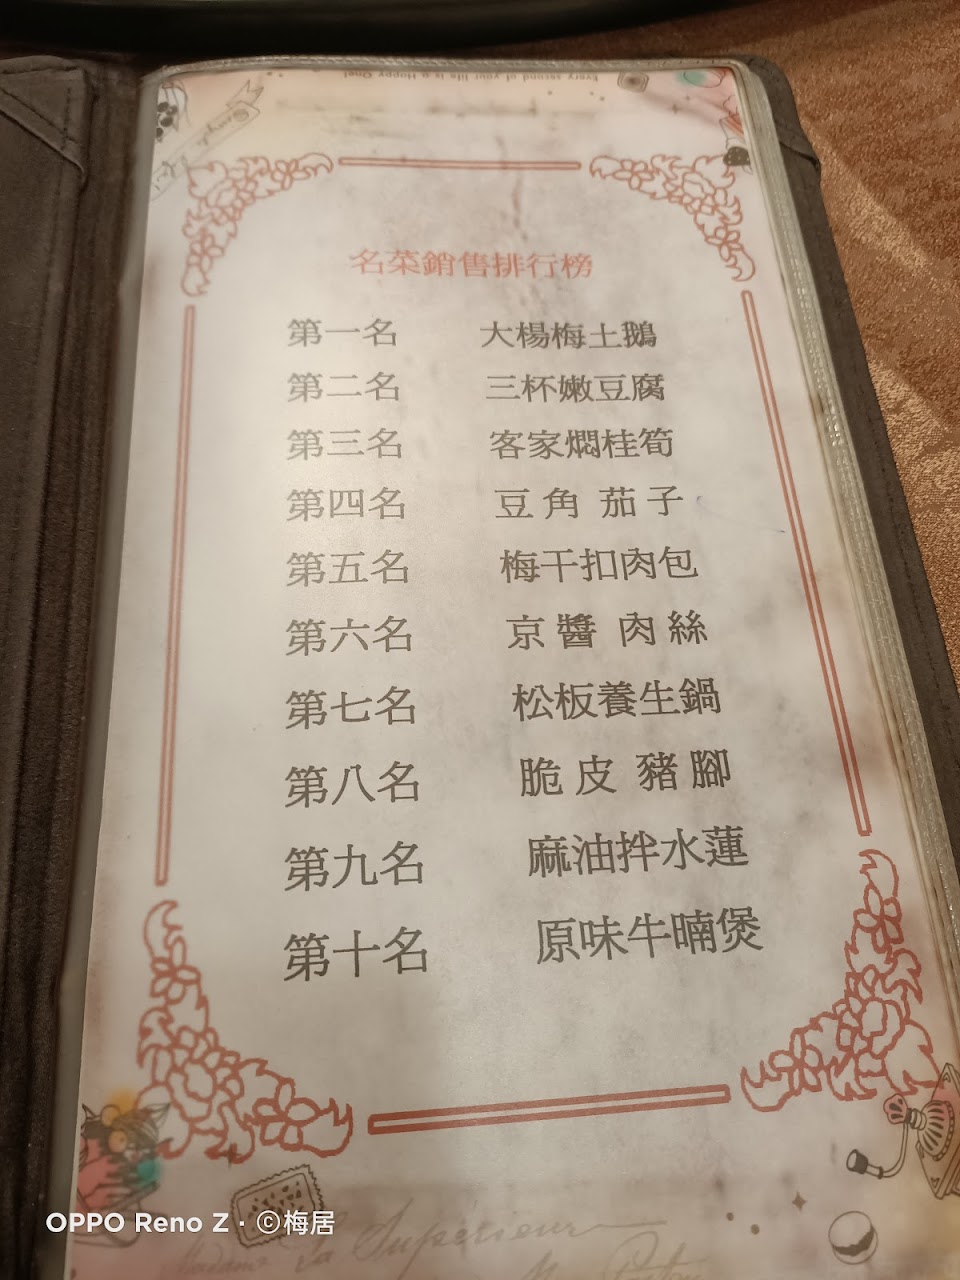 Every second of your life is a Happy One!
名菜銷售排行榜
第一名 大楊梅土鵝
第二名 三杯嫩豆腐
第三名 客家燜桂筍
第四名 豆角 茄子
第五名 梅干扣肉包
第六名 京醬 肉絲
第七名 松板養生鍋
第八名 脆皮 豬腳
第九名 麻油拌水蓮
第十名 原味牛喃煲
OPPO Reno Z · ©梅居
Madame La Supérieur